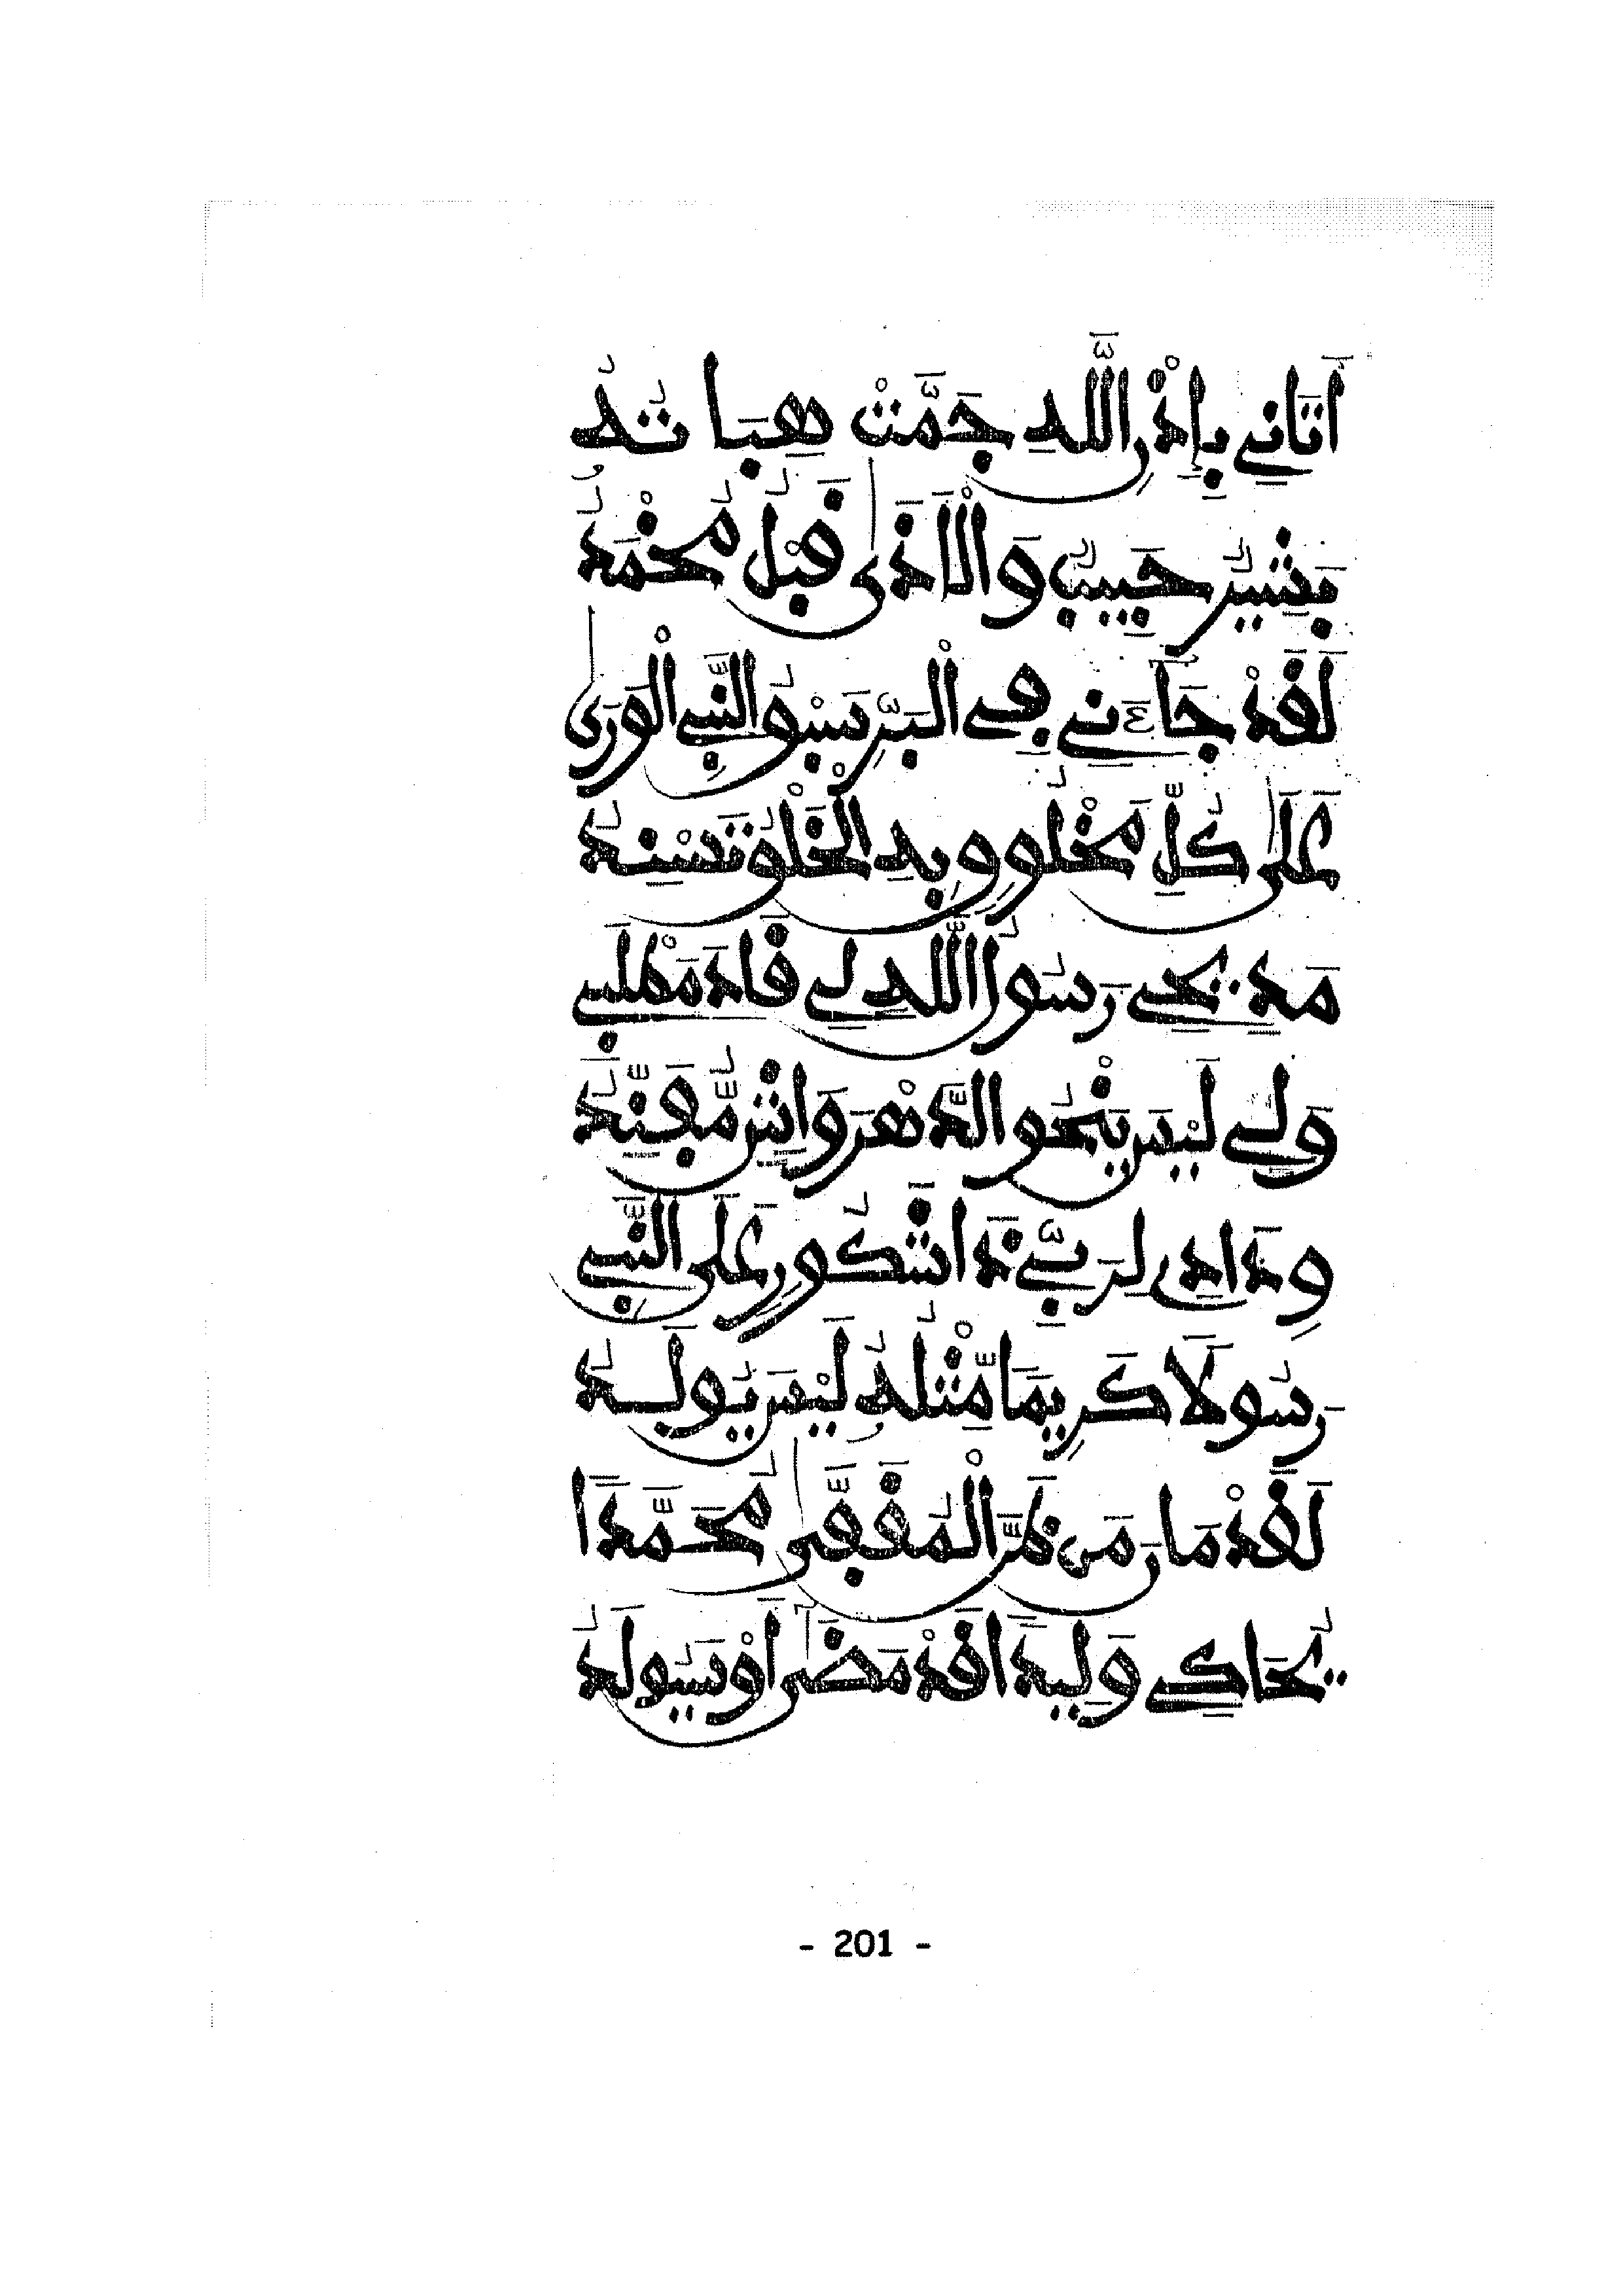 أَتَانِي بِإِذْنِ اللَّهِ جَمَّتْ هِبَاتُهُ
بَشِيرٌ حَبِيبٌ وَالْأَذَى قَبْلُ مُخْمَدُ
لَقَدْ جَاءَنِي فِي الْبَرِّ سَبْقُ النَّبِي الْوَرَى
عَلَى كُلِّ مَخْلُوقٍ بِهِ الْخَلْقُ تَسْنِدُ
مَدِيحِي رَسُولَ اللَّهِ لِي قَادَ مَطْلَبِي
وَلِي لَيْسَ يَنْحُو الدَّهْرَ وَاشٍ مُّفَنِّدُ
وِدَادِي لِرَبِّي ذَا شَكُورٍ عَلَى النَّبِي
رَسُولًا كَرِيمًا مِّثْلُهُ لَيْسَ يُولَدُ
لَقَدْ مَانَ مَن ظَنَّ الْمُقَفَّى مُحَمَّدًا
يُحَاكِي وَلِيدًا قَدْ مَضَى أَوْ سَيُولَدُ
- 201 -